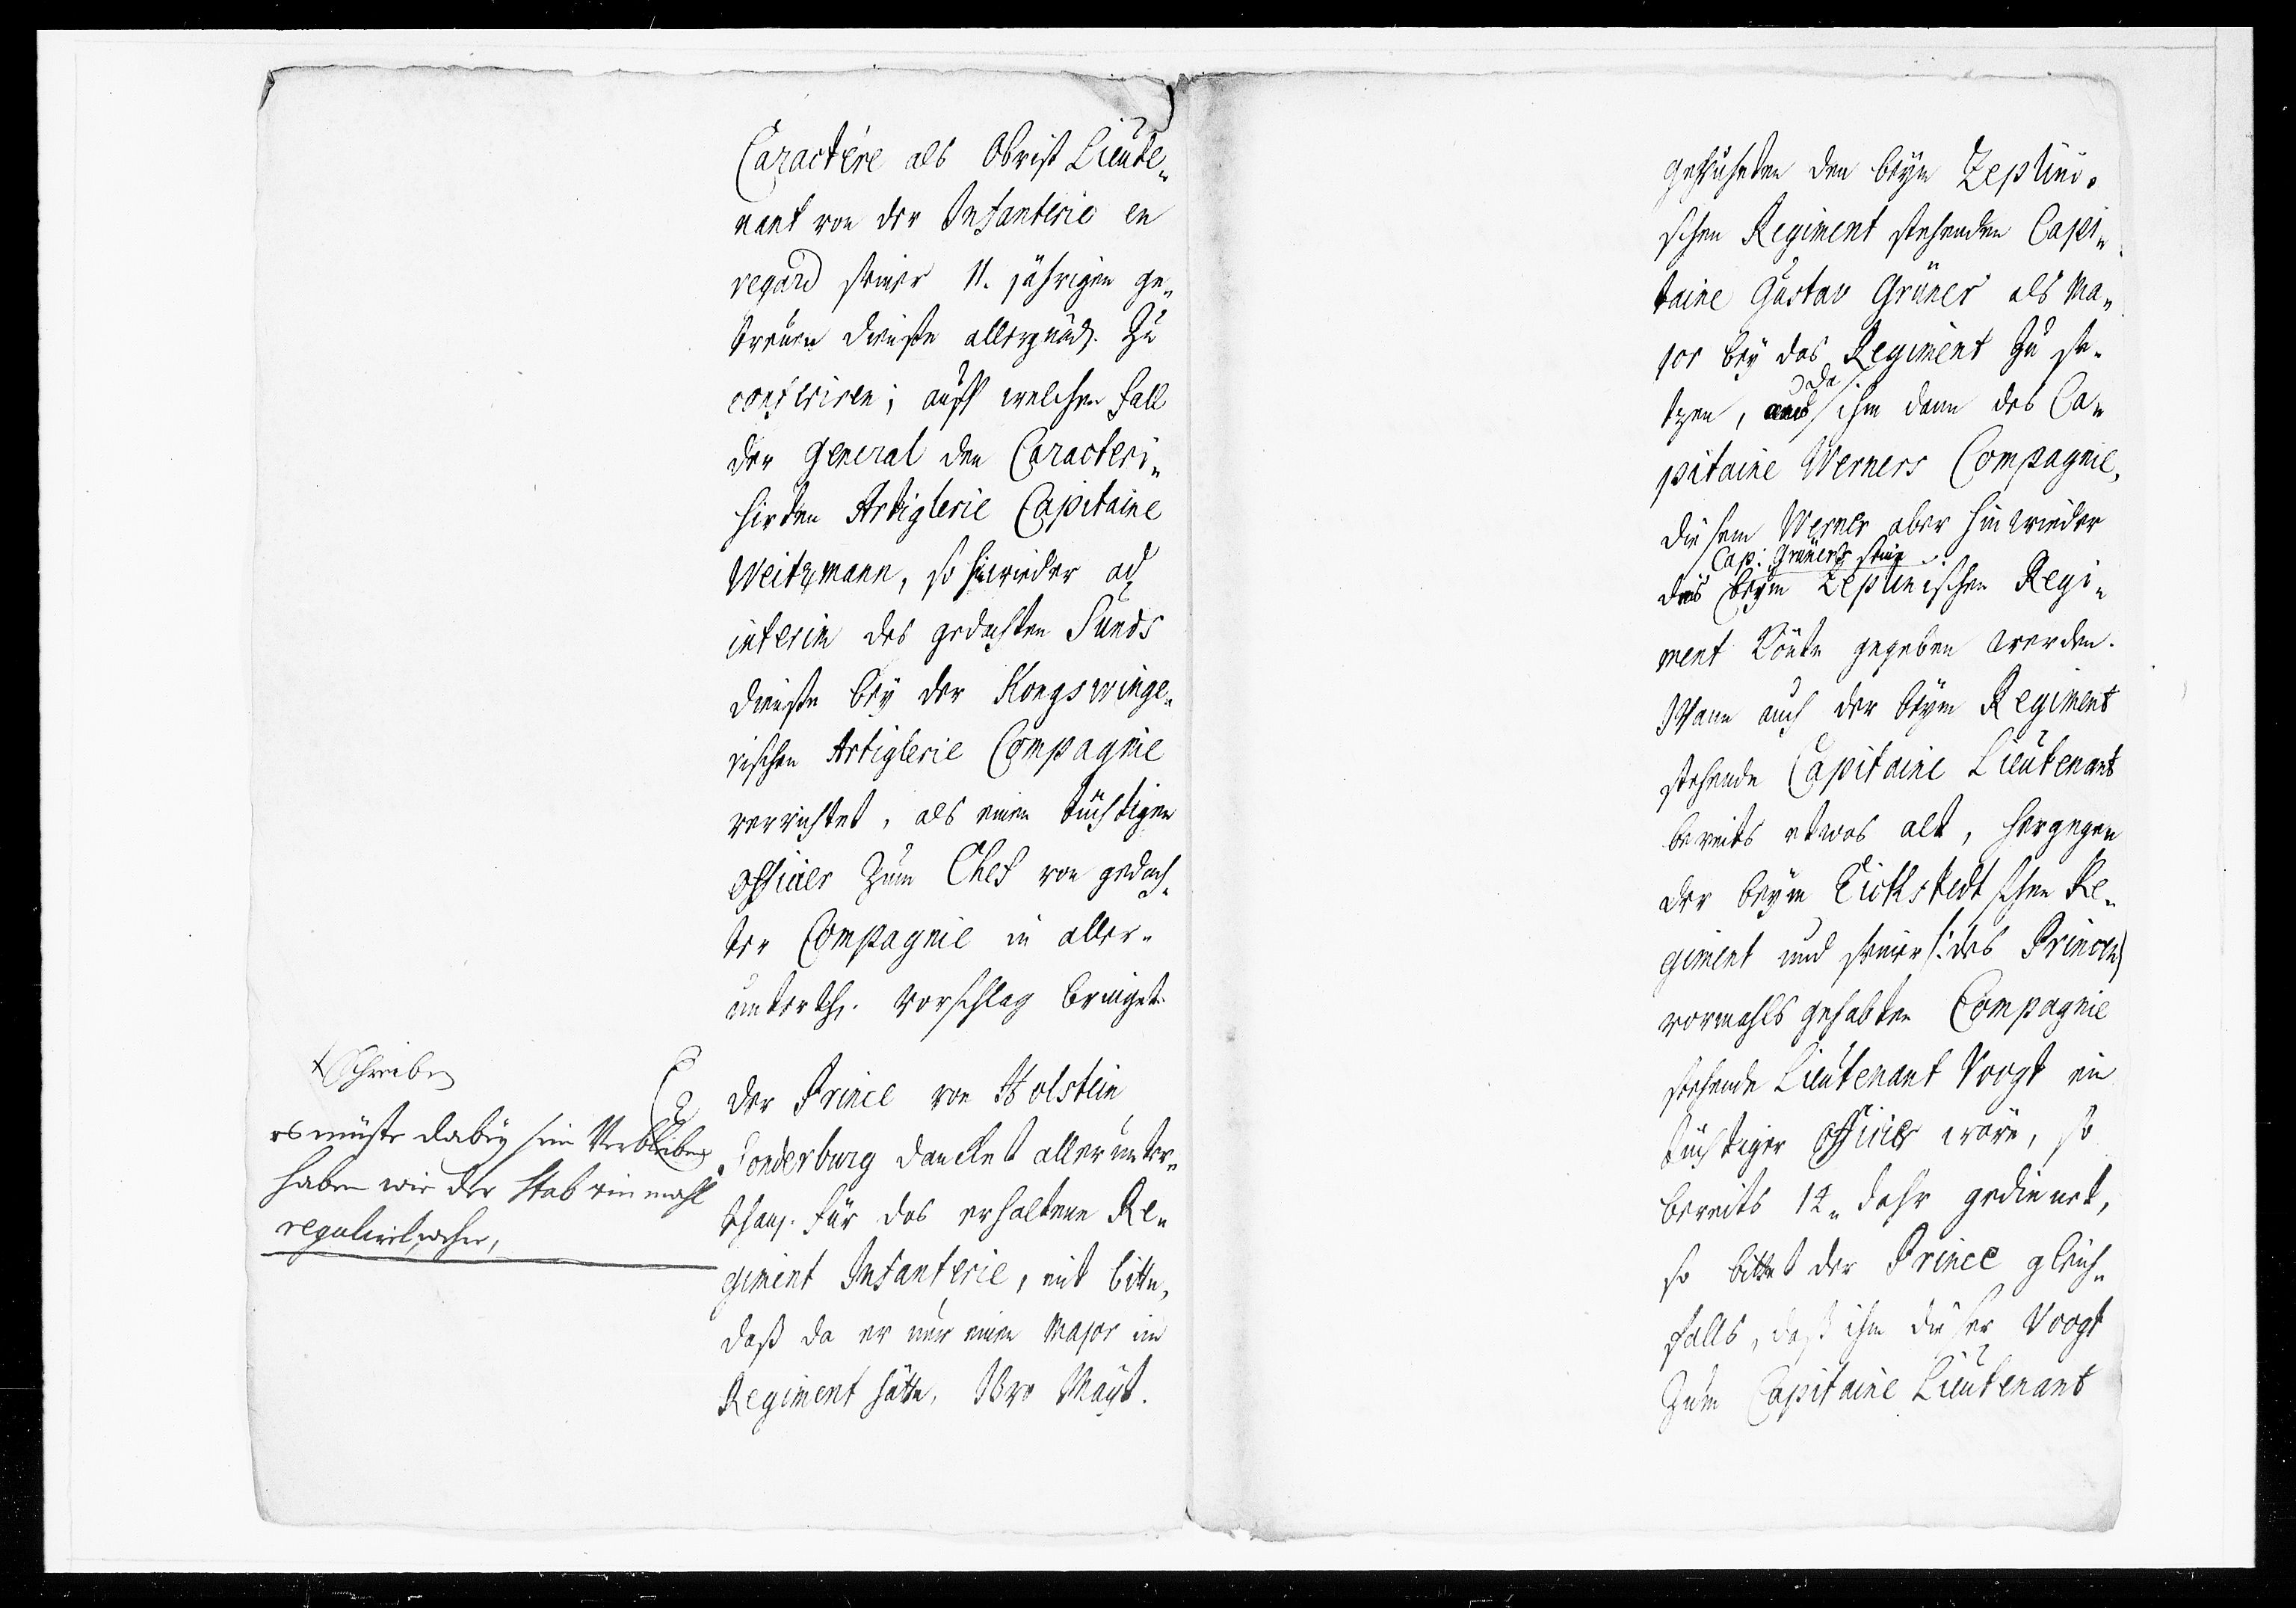 Caractére als Obrist Lieute„
nant von der Infanterie en
regard seiner 11. jährigen ge„
treuen dienste allergnäd. zu
conferiren; auff welchen fall
der General den Caracteri„
sirten Artiglerie Capitaine
Weitzmann, so hinwieder ad
interim des gedachten Sunds
dienste bey der Kongswinge„
rischen Artiglerie Compagnie
verrichtet, als einen tüchtigen
Officier zum Chef von gedach„
ter Compagnie in aller„
unterth. Vorschlag bringet.
der Prince von Holstein
Sonderburg dancket allerunter„
thän. für das erhaltene Re„
giment Infanterie, mit bitte,
daß da er nur einen Major im
Regiment hätte, Ihro Mayt.
† Schreiben
es müste dabey sein Verbleiben
haben wie der Stab einmahl
regulirt,
geruheten den beym Zepluni„
schen Regiment stehenden Capi„
taine Gustav Grüner als Ma„
jor bey das Regiment zu se„
tzen, da ihm dann des Ca„
pitaine Werners Compagnie,
diesem Werner aber hinwieder
Cap: Grüners seine
beym Zeplinischen Regi„
ment könte gegeben werden.
Wann auch der beym Regiment
stehende Capitaine Lieutenant
bereits etwas alt, hergegen
der beym Eickstedtschen Re„
giment und seiner /: des Princen
vormahls gehabten Compagnie
stehende Lieutenant Voogt ein
tüchtiger Officier wäre, so
bereits 12„ Jahr gedienet,
so bittet der Prince gleich„
falls, daß ihm dieser Voogt
zum Capitaine Lieutenant